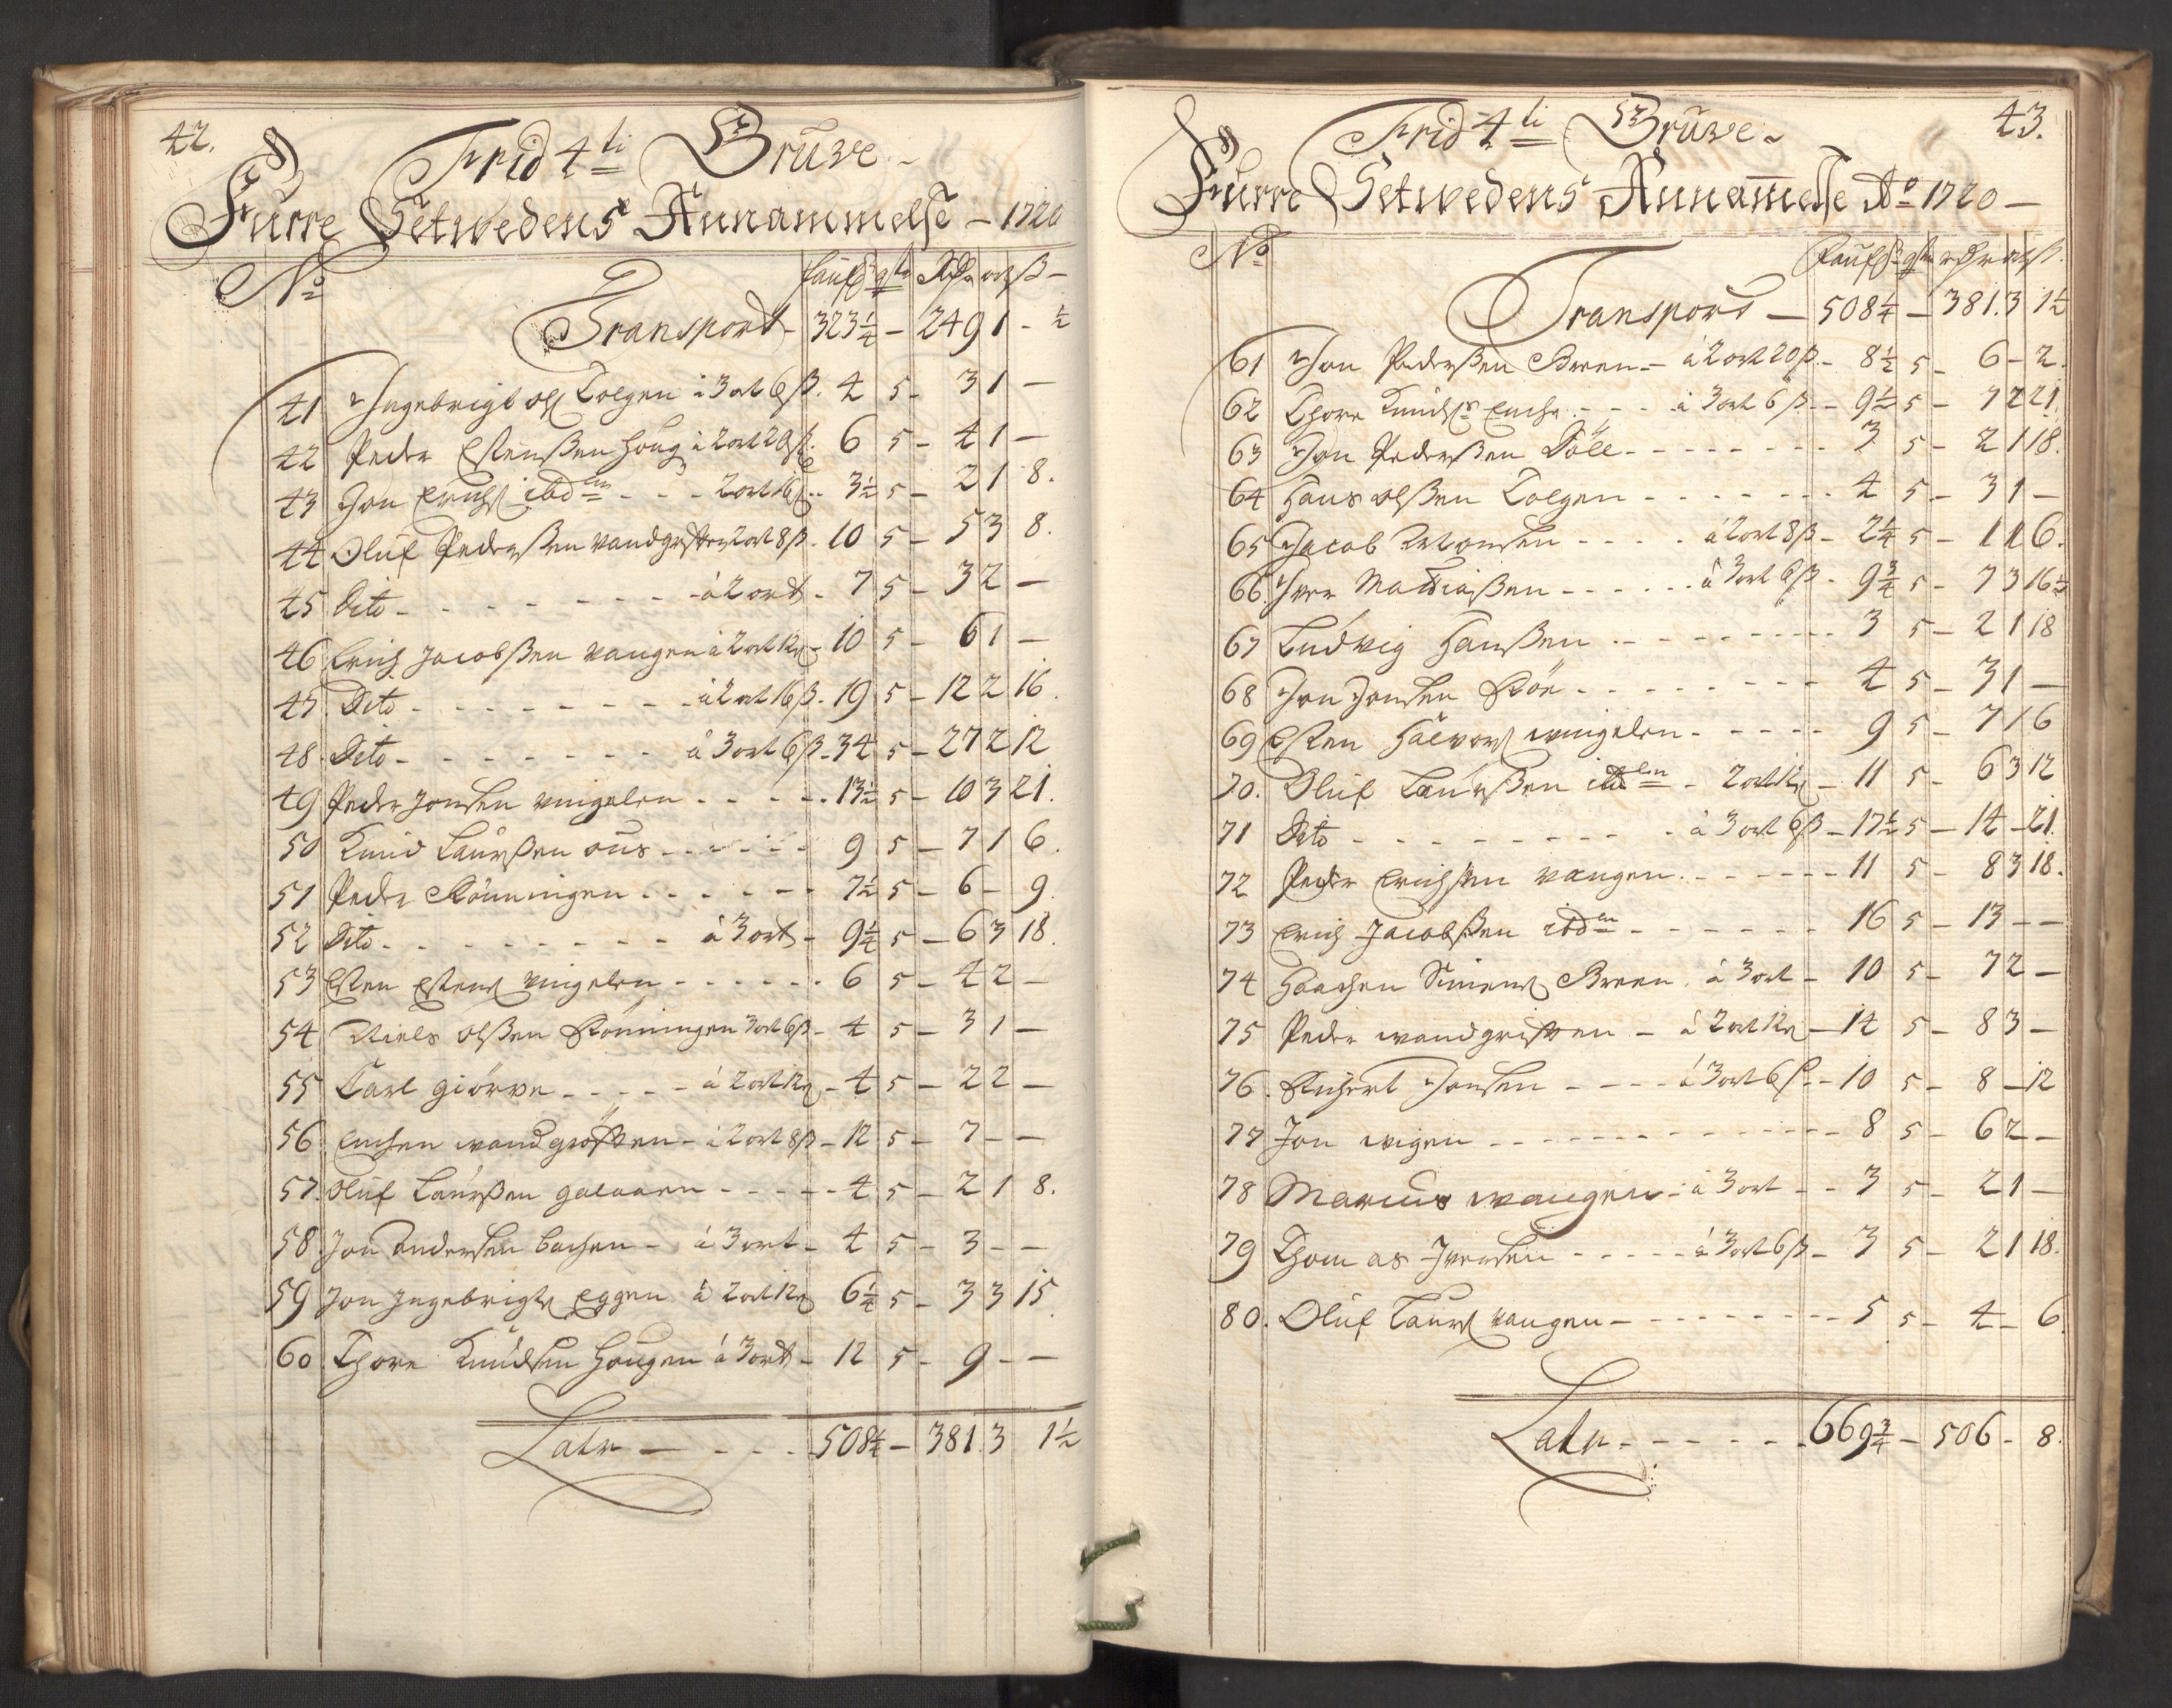 42.
Frid 4ti Gruve.
Furre Setvedens Annammelse - 1720
No faufn qtr Rdr ort ß -
Transport - 323 1/4 - 249 1 - 1/2
41 Ingebrigt ols Tolgen à 3 ort 6 ß. 4 5 - 3 1 -
42 Peder Estensßen Houg à 2 ort 20 ß. 6 5 - 4 1 -
43 Jon Erichs ibdem - - - 2 ort 16 ß. 3 1/2 5 - 2 1 8.
44 Oluf Pederßen vandgrøften 2 ort 8 ß. 10 5 - 5 3 8.
45 Dito - - - - - - - - à 2 ort - 7 5 - 3 2 -
46 Erich Jacobßen vangen à 2 ort 12 ß - 10 5 - 6 1 -
47 Dito - - - - - - - - à 2 ort 16 ß. 19 5 - 12 2 16.
48 Dito - - - - - - - à 3 ort 6 ß - 34 5 - 27 2 12
49 Peder Jonsen vingelen - - - - - 13 1/2 5 - 10 3 21.
50 Knud Laurßen ous - - - - - - 9 5 - 7 1 6.
51 Peder Rönningen - - - - - - 7 1/2 5 - 6 - 9.
52 Dito - - - - - - - - à 3 ort - 9 1/4 5 - 6 3 18.
53 Esten Estens vingelen - - - - - - 6 5 - 4 2 -
54 Niels olßen Rönningen 3 ort 6 ß - 4 5 - 3 1 -
55 Carl giörve - - - - à 2 ort 12 ß - 4 5 - 2 2 -
56 Enchen wandgröften - à 2 ort 8 ß - 12 5 - 7 - -
57. Oluf Laurßen galaaen - - - - - 4 5 - 2 1 8.
58. Jon Andersen bachen - à 3 ort - 4 5 - 3 - -
59 Jon Ingebrigts Eggen à 2 ort 12 ß 6 1/4 5 - 3 3 15
60 Thore Knudsen Hougen à 3 ort - 12 5 - 9 - -
Later - - - - 508 1/4 - 381 3 1 1/2
43.
Frid 4ti Gruve -
Furre Setvedens Annamelse Ao 1720 -
No faufn qtr rdr ort ß.
Transport - 508 1/4 - 381. 3 1 1/2
61 Jon Pederßen Breen - à 2 ort 20 ß - 8 1/2 5 - 6 - 2.
62 Thore Knuds - - - à 3 ort 6 ß - - 9 1/2 5 - 7 2 21.
63 Jon Pederßen Döll - - - - - - - - 3 5 - 2 1 18.
64 Hans olßen Tolgen - - - - - - - 4 5 - 3 1 -
65 Jacob - - - - à 2 ort 8 ß - 2 1/4 5 - 1 1 6.
66 Iver Madiaßen - - - - - - à 3 ort 6 ß - 9 3/4 5 - 7 3 16 1/2
67 Ludvig Hanßen - - - - - - - - - 3 5 - 2 1 18
68 Jon Jonsen Röe - - - - - - - - 4 5 - 3 1 -
69 Esten Halvors wingelen - - - - - 9 5 - 7 1 6
70. Oluf Laurßen ibdem - 2 ort 12 ß - 11 5 - 6 3 12
71 Dito - - - - - - - - - à 3 ort 6 ß - 17 1/2 5 - 14 - 21.
72 Peder Erichsen vangen - - - - - - - 11 5 - 8 3 18.
73 Erich Jacobßen ibdem - - - - - - - 16 5 - 13 - -
74 Haachen Simens Breen. à 3 ort - 10 5 - 7 2 -
75 Peder wandgriften - à 2 ort 12 ß - 14 5 - 8 3 -
76. Sichert Jonsen - - - - à 3 ort 6 ß - - 10 5 - 8 - 12
77 Jon wigen - - - - - - - - - - - - - - 8 5 - 6 2 -
78 Marcus wangen - à 3 ort - - 3 5 - 2 1 -
79 Thomas Iversen - - - - - à 3 ort 6 ß - 3 5 - 2 1 18.
80. Oluf Laurs vangen - - - - - - - - - 5 5 - 4 - 6
Later - - - - - - 669 3/4 - 506 - 8.